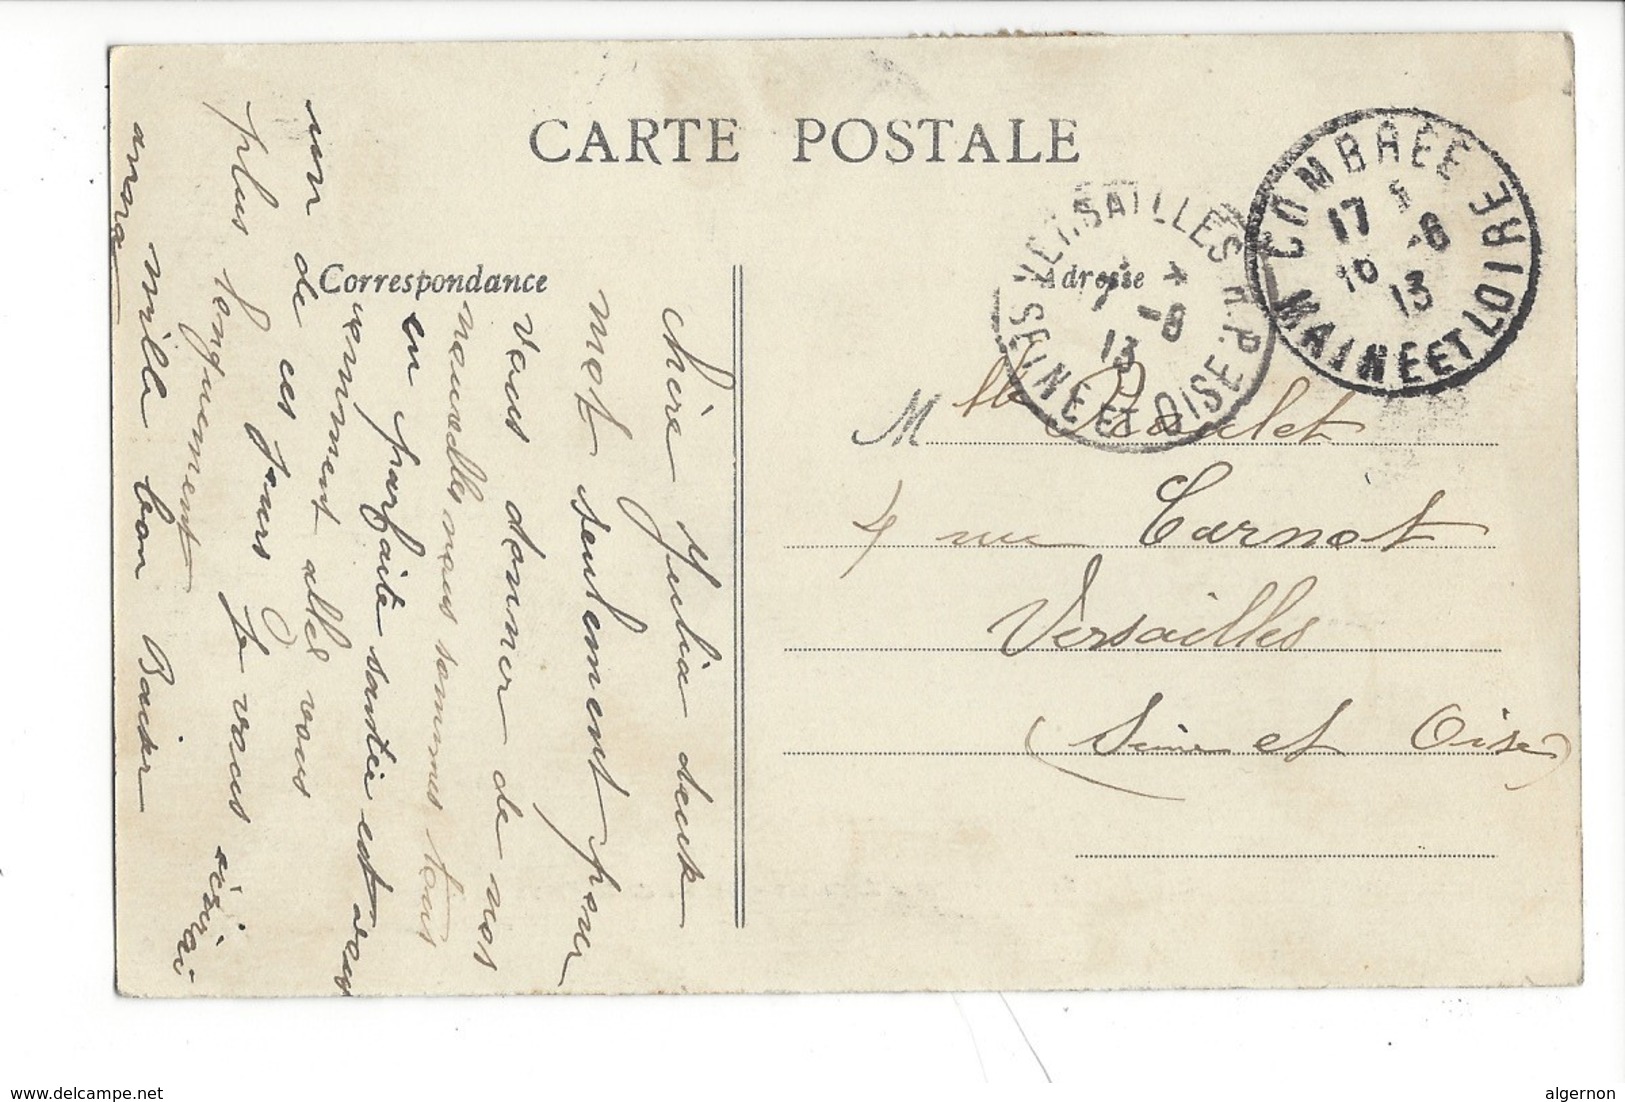 CARTE POSTALE
Correspondance
Adresse
COMBRÉE
MAINE ET LOIRE
17
16 -6
13
VERSAILLES R.P.
SEINE ET OISE
-6
13
Mlle Poulet
4 rue Carnot
Versailles
(Seine et Oise)
chère Julia deux
mot seulement pour
vous donner de nos
nouvelles nous sommes tous
en parfaite santée et vous
comment allez vous
un de ces jours je vous
plus longuement
mille bon Baiser
delcampe.net
algernon